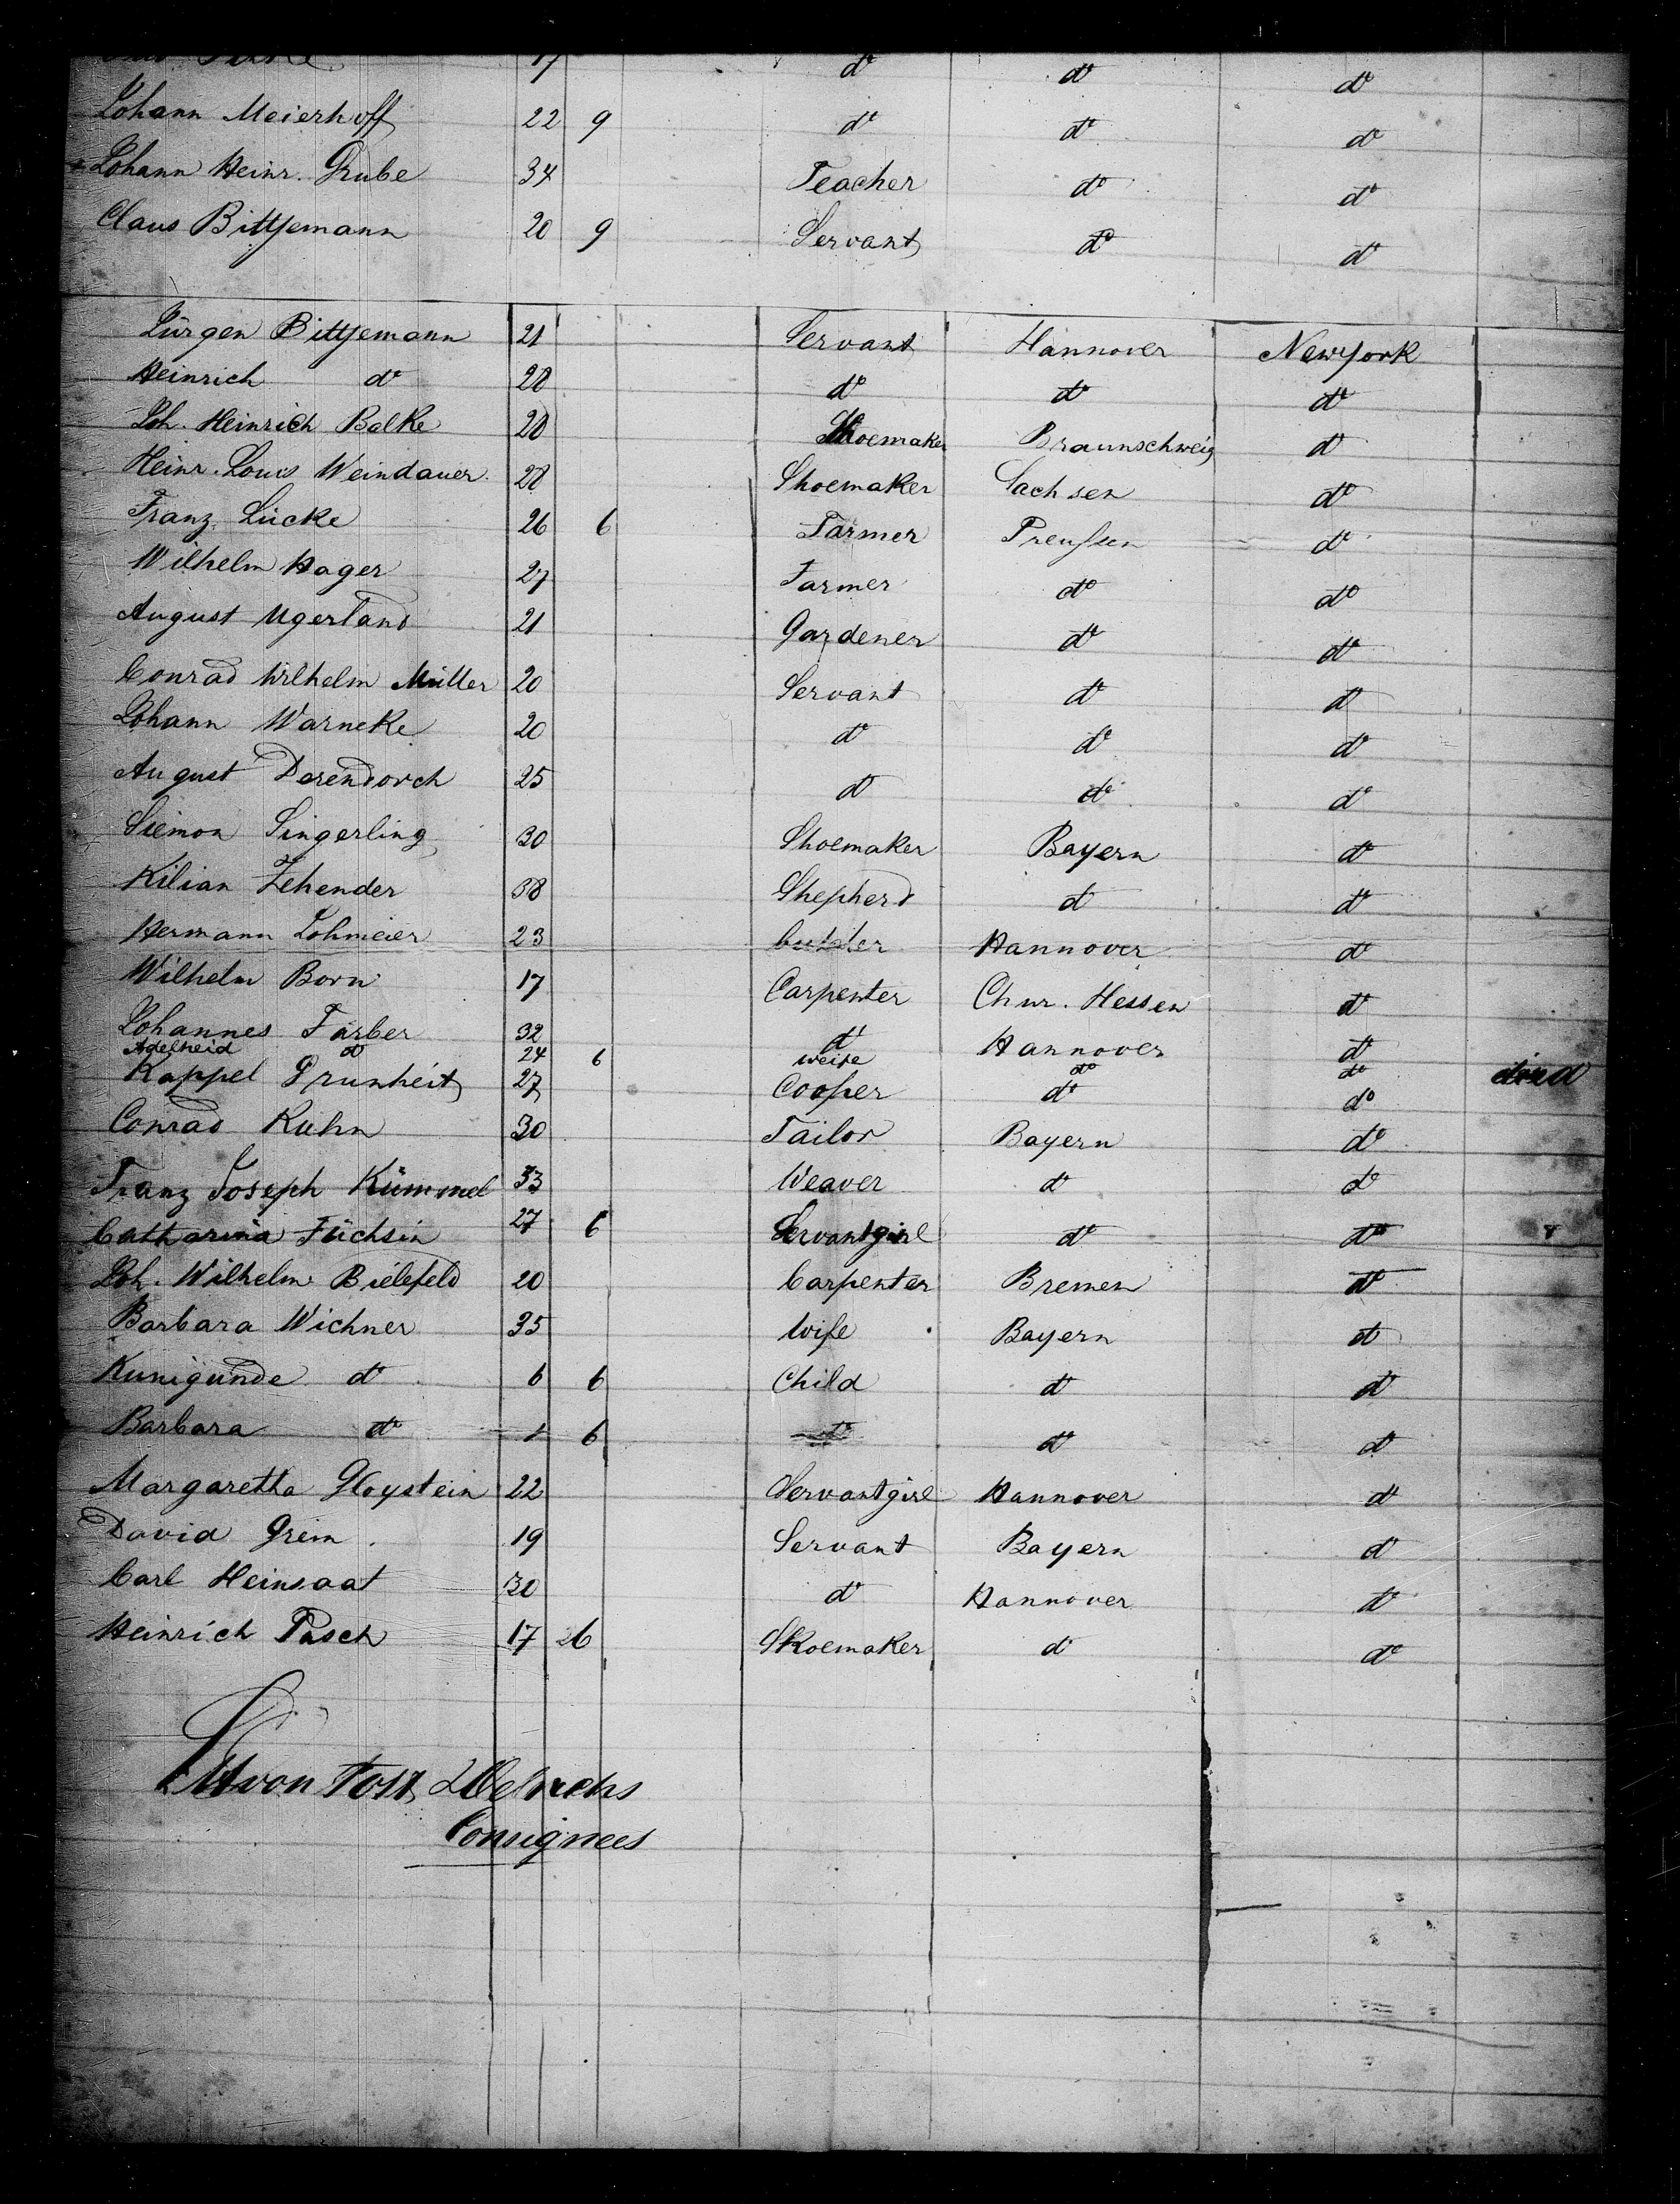 17 do do do
Johann Meierhoff 22 9 do do do
Johann Heinr. Grube 34 Teacher do do
Claus Bittjemann 20 9 Servant do do
Jürgen Bittjemann 21 Servant Hannover Newyork
Heinrich do 28 do do do
Joh. Heinrich Balke 28 Shoemaker Braunschweig do
Heinr. Louis Weindauer 28 Shoemaker Sachsen do
Franz Lücke 26 6 Farmer Preußen do
Wilhelm Hager 27 Farmer do do
August Ugerland 21 Gardener do do
Conrad Wilhelm Müller 20 Servant do do
Johann Warneke 20 do do do
August Derendorch 25 do do do
Siemon Singerling 30 Shoemaker Bayern do
Kilian Zehender 38 Shepherd do do
Hermann Lohmeier 23 Hannover do
Wilhelm Born 17 Carpenter Chur. Hessen do
Johannes Farber 32 do Hannover do
Adelheid do 24 6 weife do do
Kappel Prunheit 27 Cooper do do died
Conrad Kuhn 30 Tailor Bayern do
Franz Joseph Kümmel 33 Weaver do do
Catharina Füchsin 27 6 Servantgirl do do
Joh. Wilhelm Bielefeld 20 Carpenter Bremen do
Barbara Wichner 35 Wife Bayern do
Kunigunde do 6 6 Child do do
Barbara do 1 6 do do do
Margaretha Gloystein 22 Servantgirl Hannover do
David Grim 19 Servant Bayern do
Carl Heinsaat 30 do Hannover do
Heinrich Pasch 17 6 Shoemaker do do
von Post & Oelrichs
Consignees